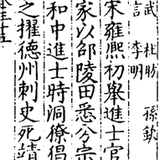 武 杜昉 孫
李明
宋雍熙初舉進士官
家以邵陵田悉分宗
和中進士時洞獠倡
之擢德州刺史死靖